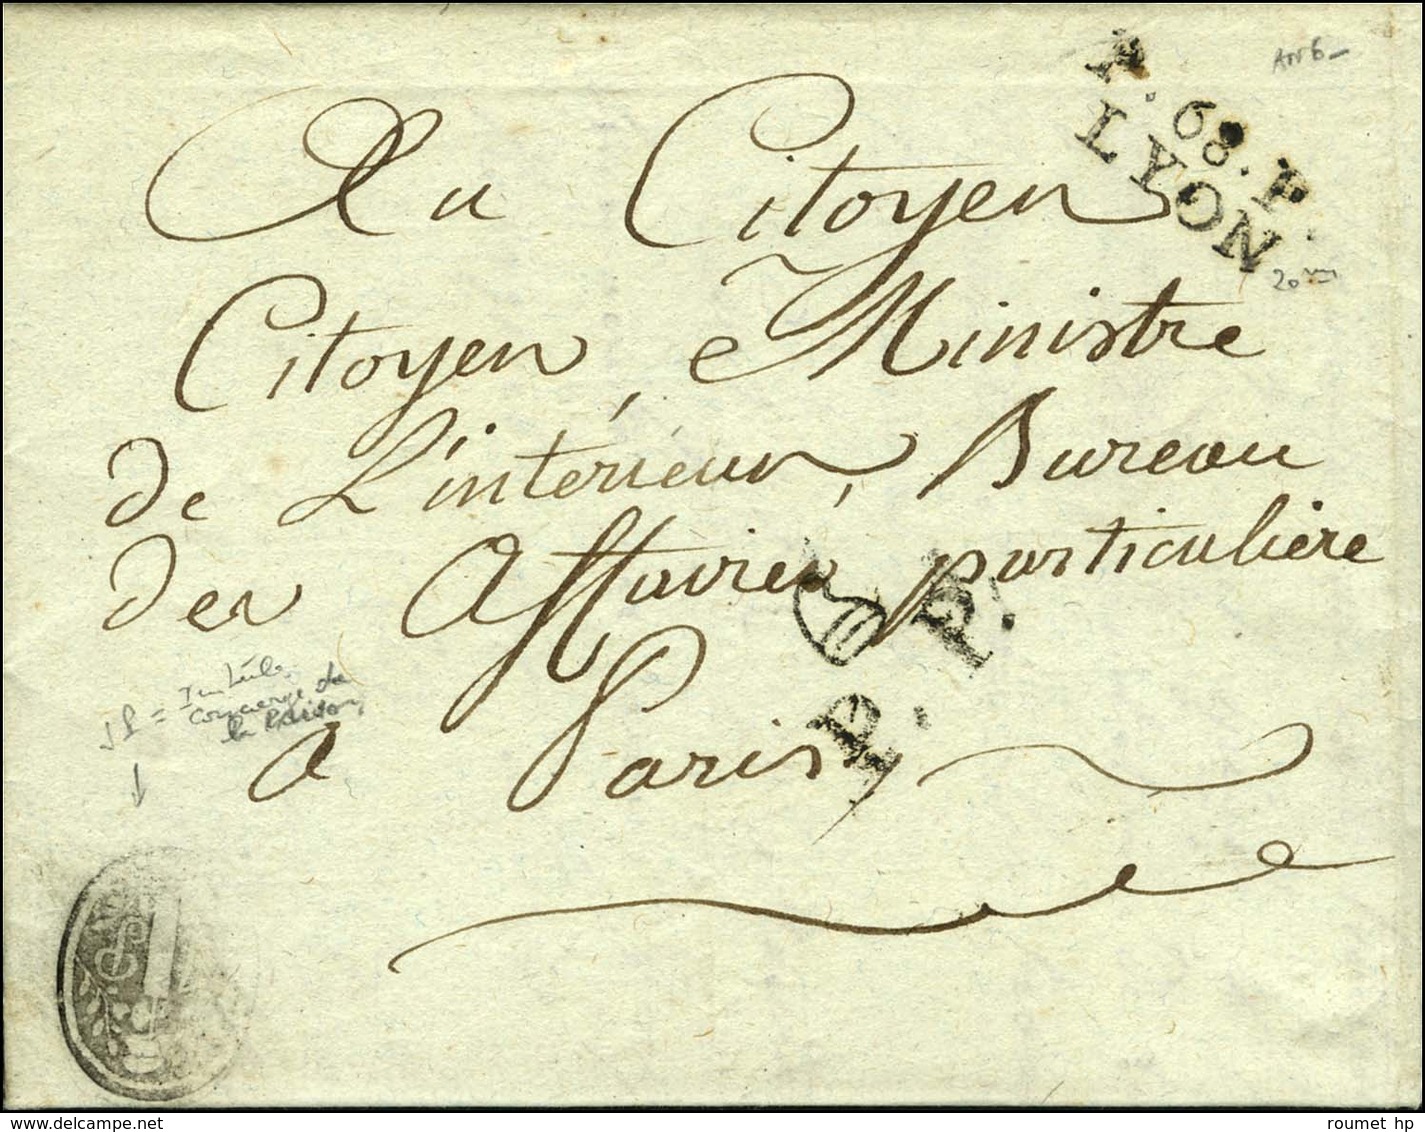 AN 6
P. 68. P.
LYON
Au Citoyen
Citoyen, Ministre
de L'intérieur, Bureau
des Affaires particulière
P. P.
P. P.
à Paris,
concierge de
la Prison
delcampe.net
roumet hp